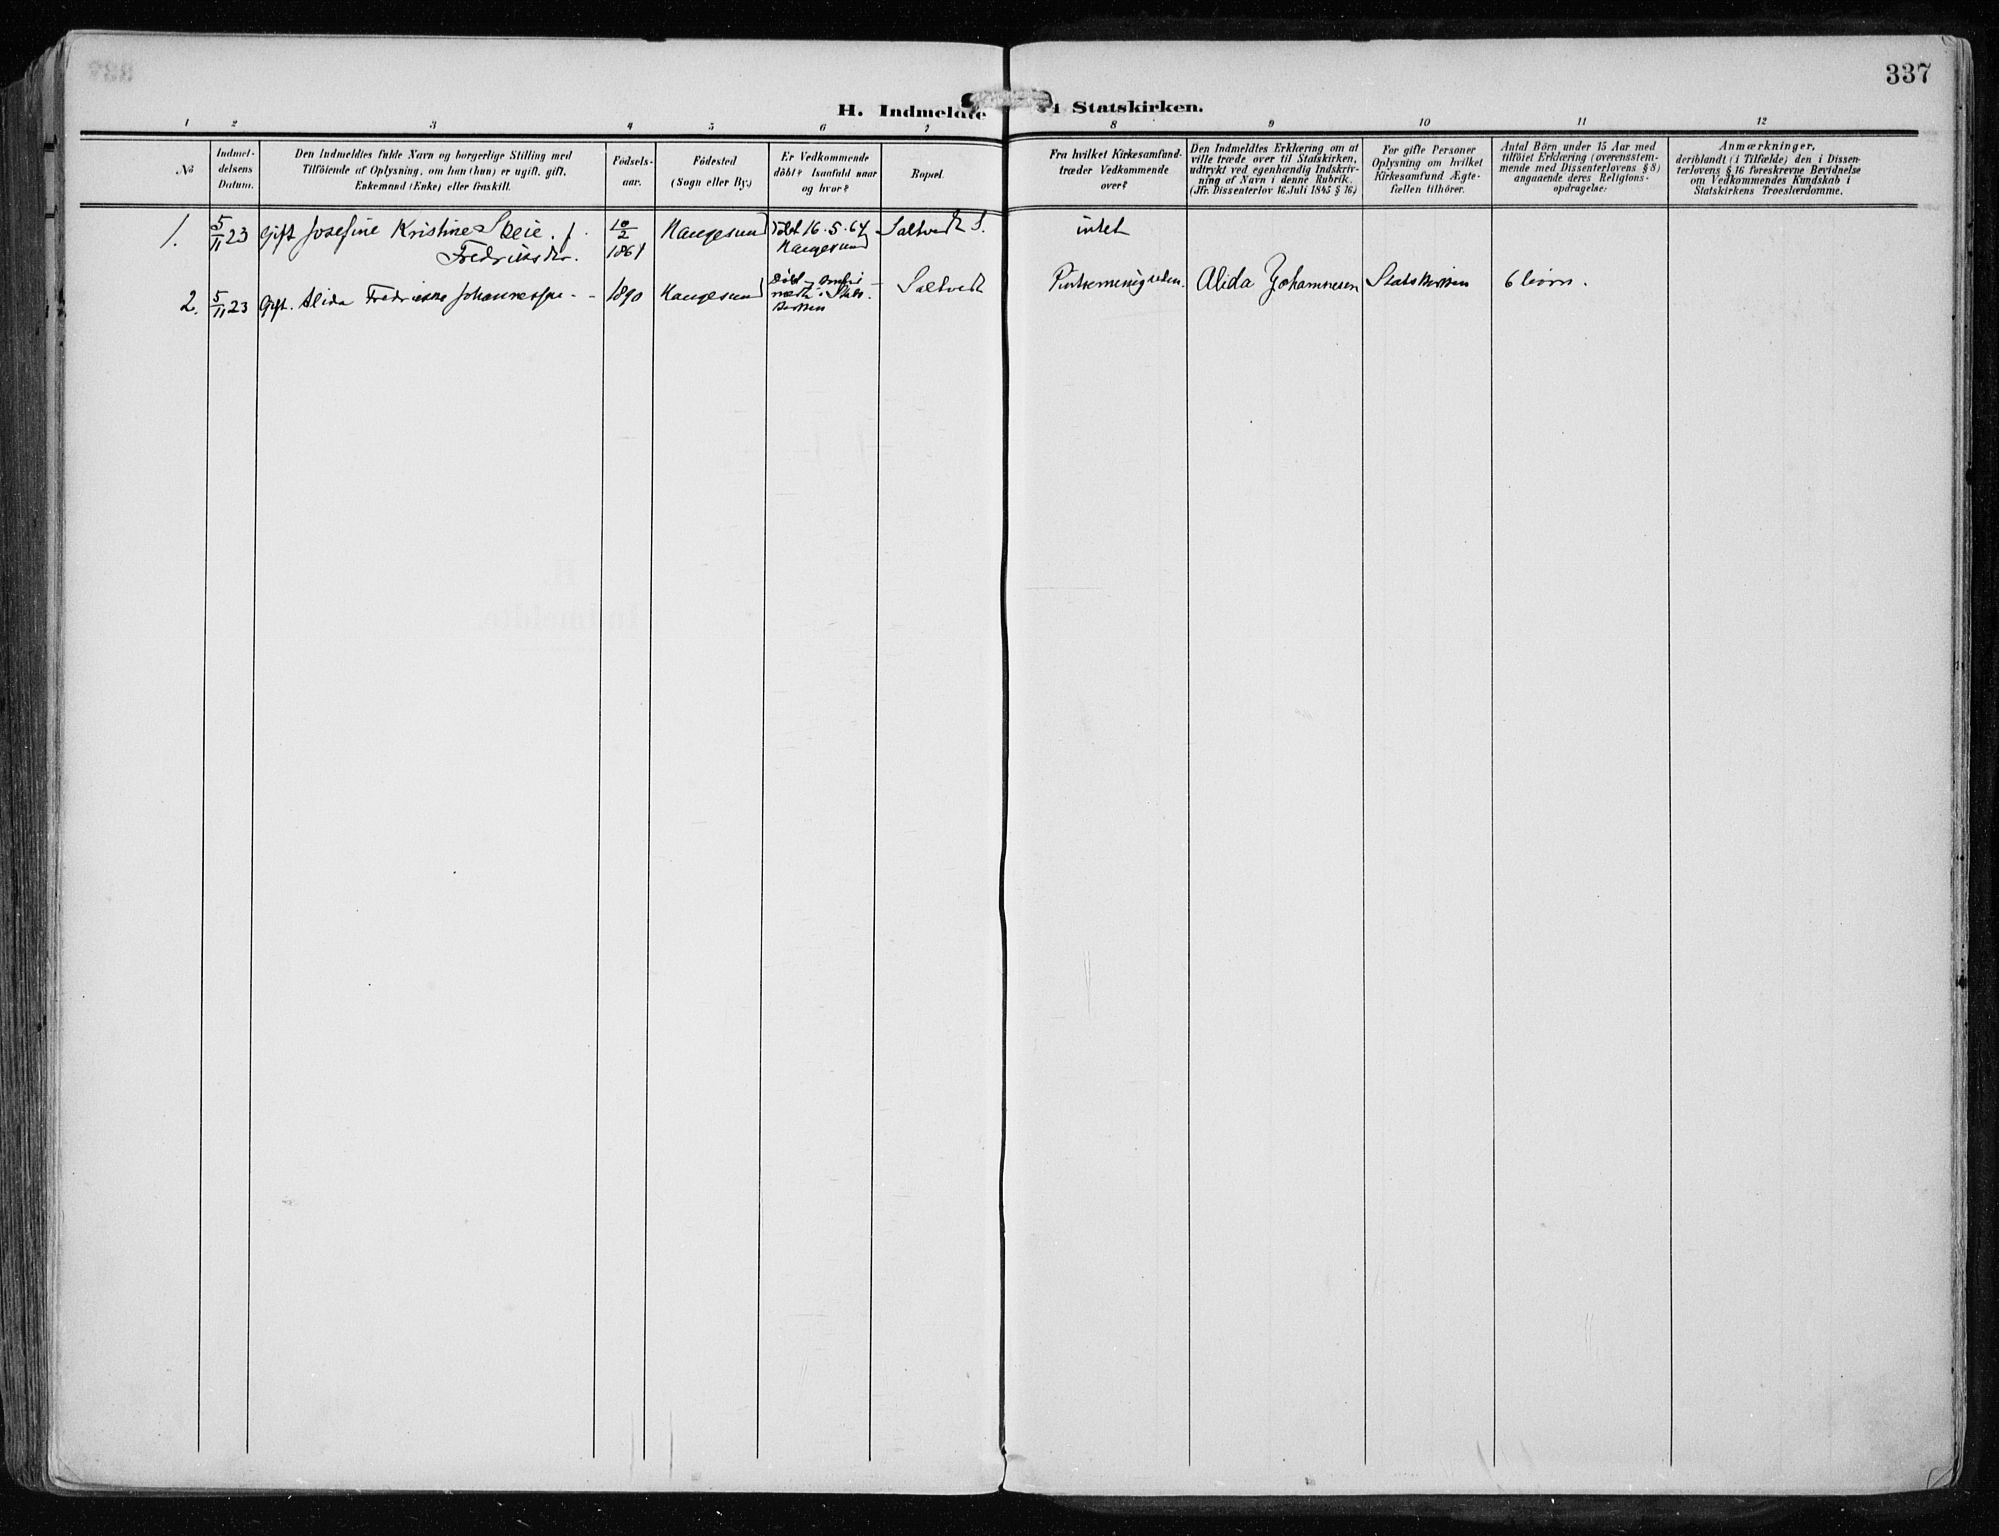 337
H. Indmeldte i Statskirken.
1 2 3 4 5 6 7 8 9 10 11 12
No
Indmel-
delsens
Datum.
Den Indmeldtes fulde Navn og borgerlige Stilling med
Tilföiende af Oplysning, om han (hun) er ugift, gift,
Enkemand (Enke) eller fraskilt.
Födsels-
aar.
Födested
(Sogn eller By.)
Er Vedkommende
döbt? Isaafald naar
og hvor?
Bopæl.
Fra hvilket Kirkesamfund
træder Vedkommende
over?
Den Indmeldtes Erklæring om at
ville træde over til Statskirken,
udtrykt ved egenhændig Indskriv-
ning af Navn i denne Rubrik.
(Jfr. Dissenterlov 16. Juli 1845 § 16)
For gifte Personer
Oplysning om hvilket
Kirkesamfund Ægte-
fællen tilhörer.
Antal Börn under 15 Aar med
tilföiet Erklæring (overensstem-
mende med Dissenterlovens § 8)
angaaende deres Religions-
opdragelse:
Anmærkninger,
deriblandt (i Tilfælde) den i Dissen-
terlovens § 16 foreskrevne Bevidnelse
om Vedkommendes Kundskab i
Statskirkens Troeslærdomme.
1. 5/11 23 Gift Josefine Kristine Skeie. f. 10/2 Haugesund Døbt 16.5.64 Saltvedt S. intet
Fredriksdtr. 1864 Haugesund
2. 5/11 23 Gift. Alida Fredrikke Johannessen - - 1890 Haugesund Døbt i Stats- Saltvedt Pinsemenigheden. Alida Johannesen Statskirken 6 börn.
kirken